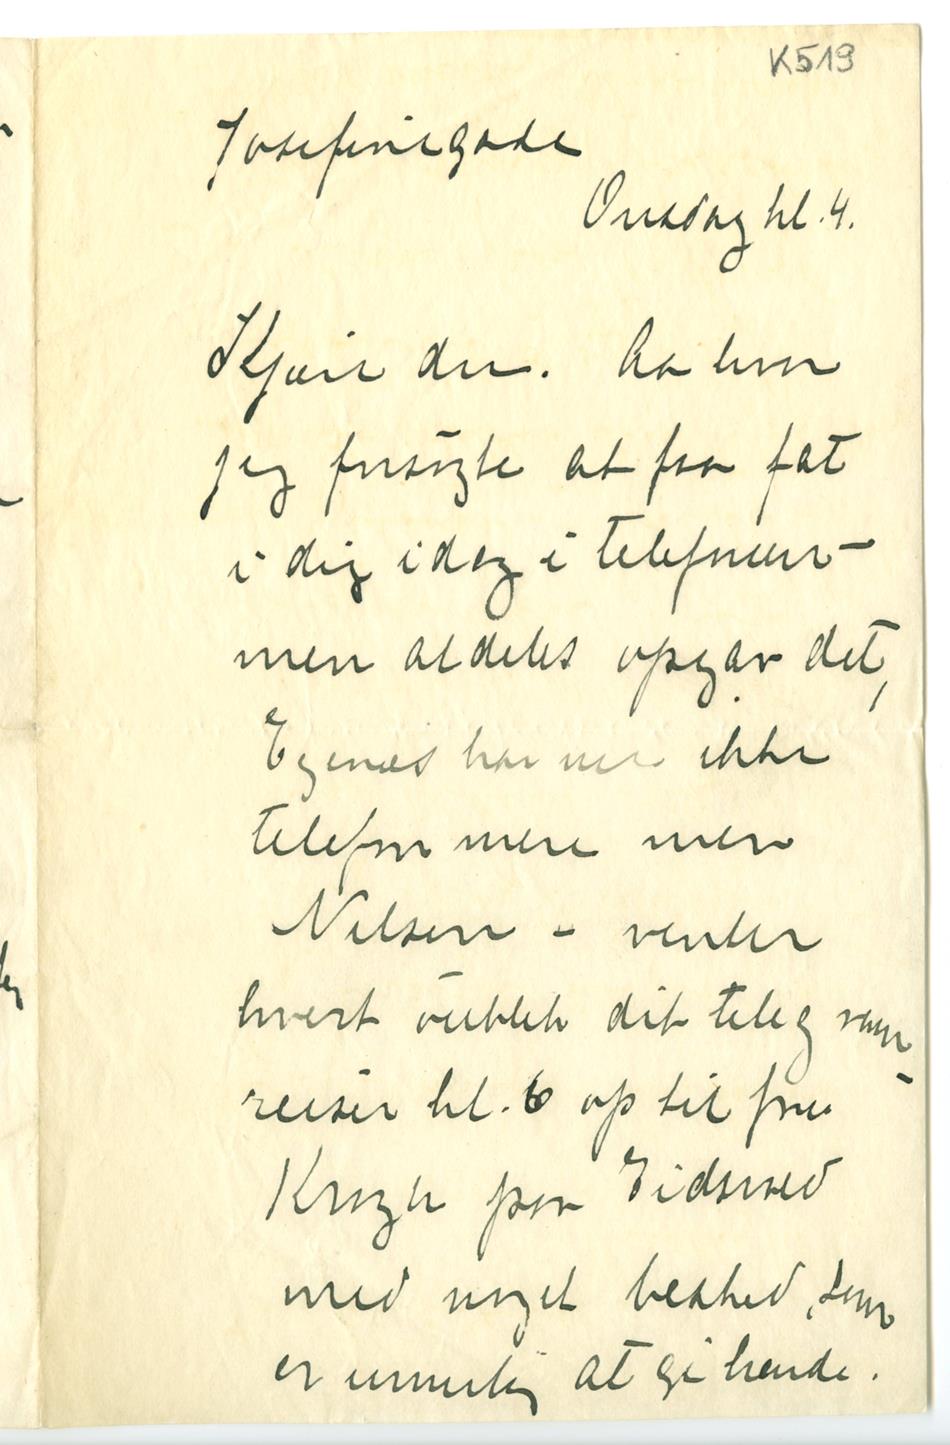 K519
Josefinegade
Onsdag kl. 4.
Kjære du. Aa hvor
jeg forsögte at faa fat
i dig idag i telefonen –
men aldeles opgav det,
Egenæs har nu ikke
telefon mere men
Nilsen – venter
hvert öieblik dit telegram –
reiser kl. 6 op til fru
Krogh paa Eidsvold
med noget besked, som
er umulig at gi hende.